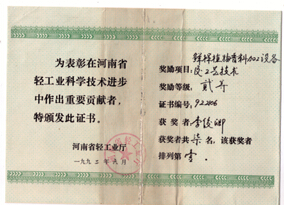 为表彰在河南省
轻工业科学技术进步
中作出重要贡献者，
特颁发此证书。
河南省轻工业厅
一九九三年 月
设备
奖励项目：及工艺技术
奖励等级：贰等
证书编号：92206
获奖者：李
获奖者共柒名，该获奖者
排列第壹。